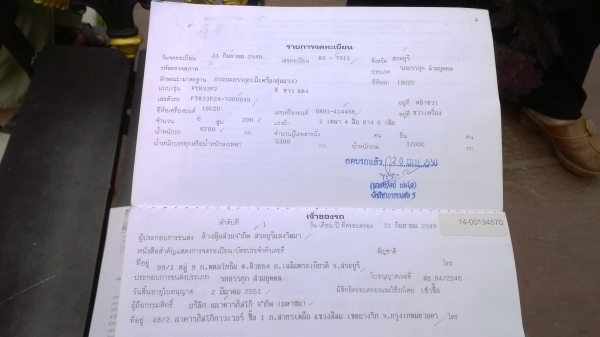 รายการจดทะเบียน
วันจดทะเบียน 21 กันยายน 2549 เลขทะเบียน 83 - 7511 จังหวัด สระบุรี
รหัสตรวจสภาพ ประเภท รถบรรทุก ส่วนบุคคล
ลักษณะ/มาตรฐาน กระบะบรรทุก(มีเครื่องทุ่นแรง) ยี่ห้อรถ ISUZU
แบบ/รุ่น FTR33F2 สี ขาว แดง
เลขตัวรถ FTR33F24-7000849 อยู่ที่ หน้าขวา
ยี่ห้อเครื่องยนต์ ISUZU เลขเครื่องยนต์ 6HH1-414486 อยู่ที่ ขวาเครื่อง
จำนวน 6 สูบ 200 แรงม้า 2 เพลา 4 ล้อ ยาง 6 เส้น
น้ำหนักรถ 6700 กก. จำนวนผู้โดยสารนั่ง คน ยืน คน
น้ำหนักบรรทุกหรือน้ำหนักลงเพลา 5300 กก. น้ำหนักรวม 12000 กก.
นักวิชาการขนส่ง 5
เจ้าของรถ
ลำดับที่ 1 วัน เดือน ปี ที่ครอบครอง 21 กันยายน 2549 14-00134570
ผู้ประกอบการขนส่ง ห้างหุ้นส่วนจำกัด สระบุรีแสงวัฒนา
หนังสือสำคัญแสดงการจดทะเบียน/บัตรประจำตัวเลขที่ สัญชาติ
ที่อยู่ 99/1 หมู่ 9 ถ.พหลโยธิน ต.ห้วยบง อ.เฉลิมพระเกียรติ จ.สระบุรี โทร
ประกอบการขนส่งประเภท รถบรรทุก ส่วนบุคคล ใบอนุญาตเลขที่ สบ.94/2546
วันสิ้นอายุใบอนุญาต 2 มีนาคม 2551 มีสิทธิครอบครองและใช้รถโดย เช่าซื้อ
ผู้ถือกรรมสิทธิ์ บริษัท ธนาคารทิสโก้ จำกัด (มหาชน)
ที่อยู่ 48/2 อาคารทิสโก้ทาวเวอร์ ชั้น 1 ถ.สาทรเหนือ แขวงสีลม เขตบางรัก จ.กรุงเทพมหานคร โทร